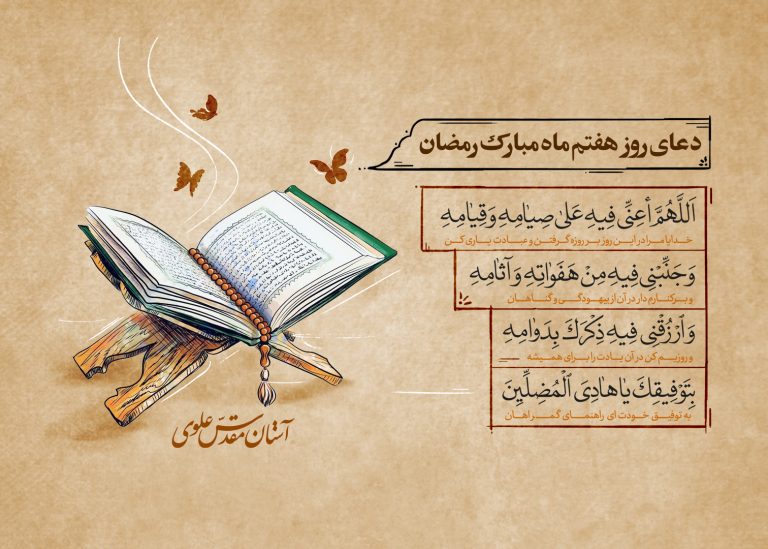 دعای روز هفتم ماه مبارک رمضان
اَللَّهُمَّ أَعِنِّي فِيهِ عَلىٰ صِيٰامِهِ وَقِيٰامِهِ
خدایا مرا در این روز بر روزه گرفتن و عبادت یاری کن
وَجَنِّبْنِي فِيهِ مِنْ هَفَوٰاتِهِ وَآثٰامِهِ
و برکنارم دار در آن از بیهودگی و گناهان
وَٱرْزُقْنِي فِيهِ ذِكْرَكَ بِدَوٰامِهِ
و روزیم کن در آن یادت را برای همیشه
بِتَوْفِيقِكَ يٰا هٰادِيَ ٱلْمُضِلِّينَ
به توفیق خودت ای راهنمای گمراهان
آستان مقدس علوی